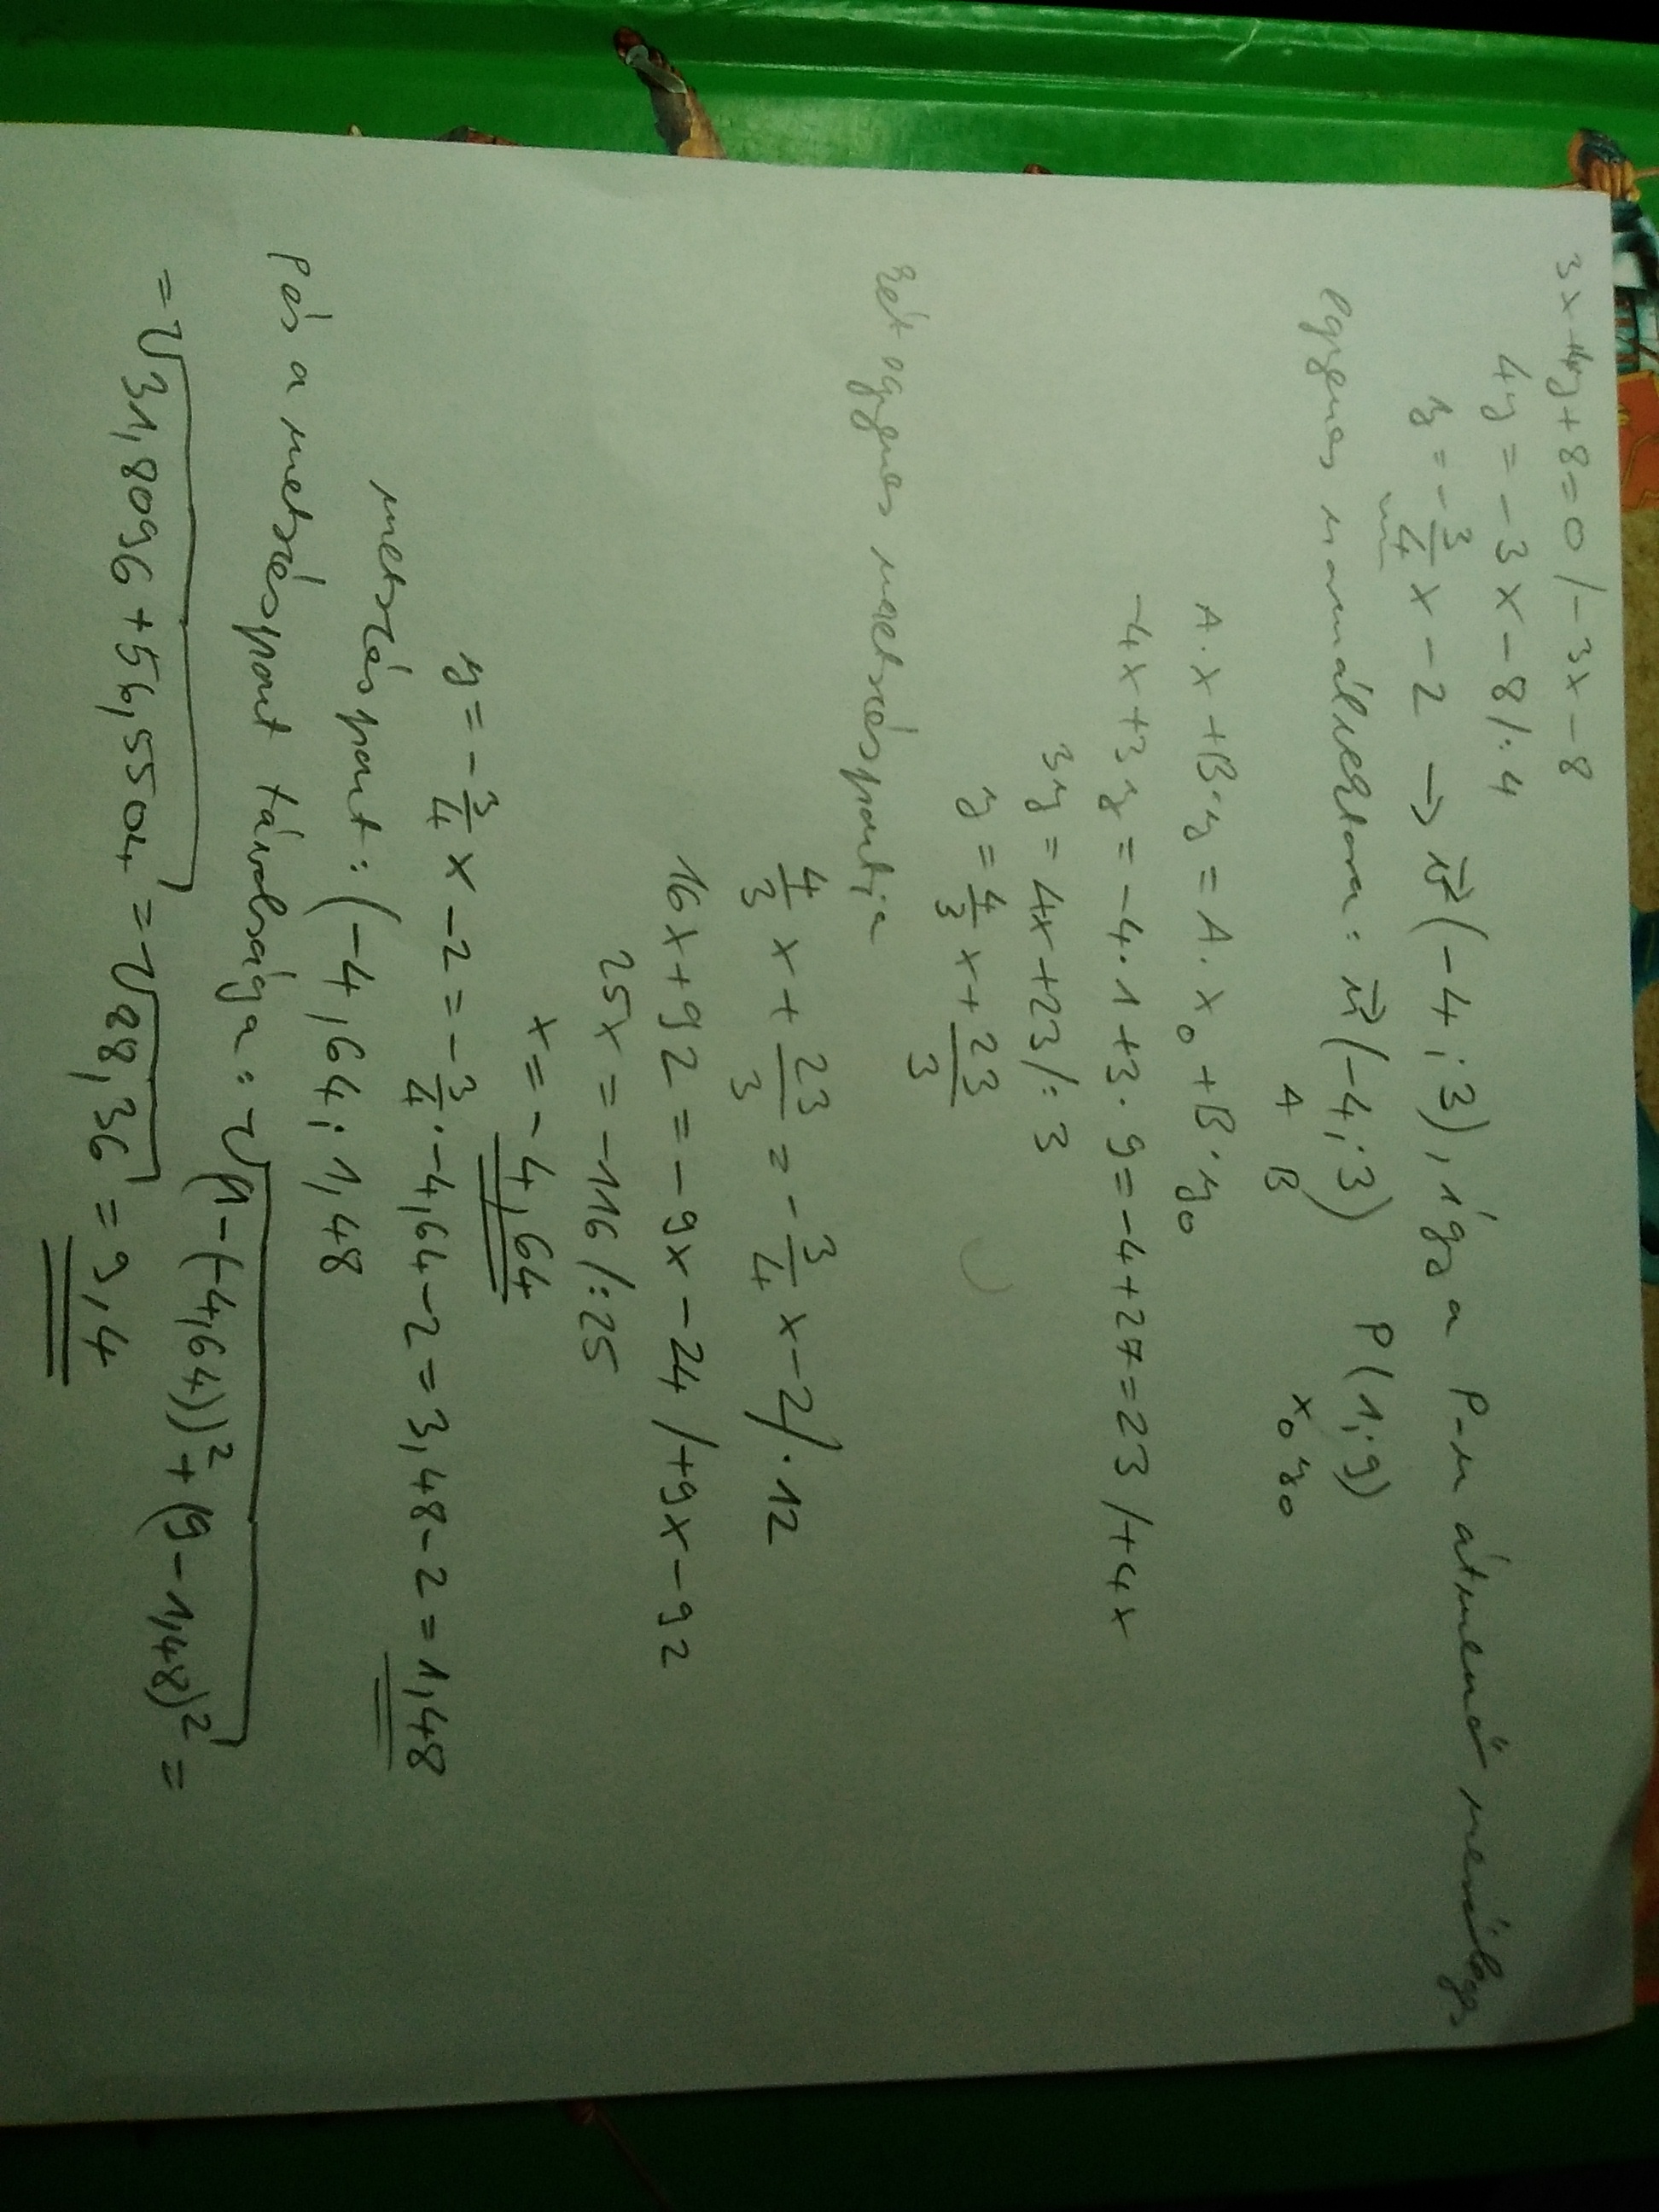 3x+4y+8=0 /-3x-8
4y = -3x-8 /:4
y = -3/4 x-2 → v⃗(-4;3), íga a P-n átmenő merőleges
m
egyenes normálvektora: n⃗(-4;3) P(1;9)
A B x₀ y₀
A·x+B·y = A·x₀+B·y₀
-4x+3y = -4·1+3·9=-4+27=23 /+4x
3y = 4x+23 /:3
y = 4/3 x + 23/3
Két egyenes metszéspontja
4/3 x + 23/3 = -3/4 x-2 /·12
16x+92 = -9x-24 /+9x-92
25x = -116 /:25
x = -4,64
y = -3/4 x-2 = -3/4·-4,64-2 = 3,48-2 = 1,48
metszéspont: (-4,64; 1,48
P és a metszéspont távolsága: √(1-(-4,64))²+(9-1,48)² =
= √31,8096+56,5504 = √88,36 = 9,4